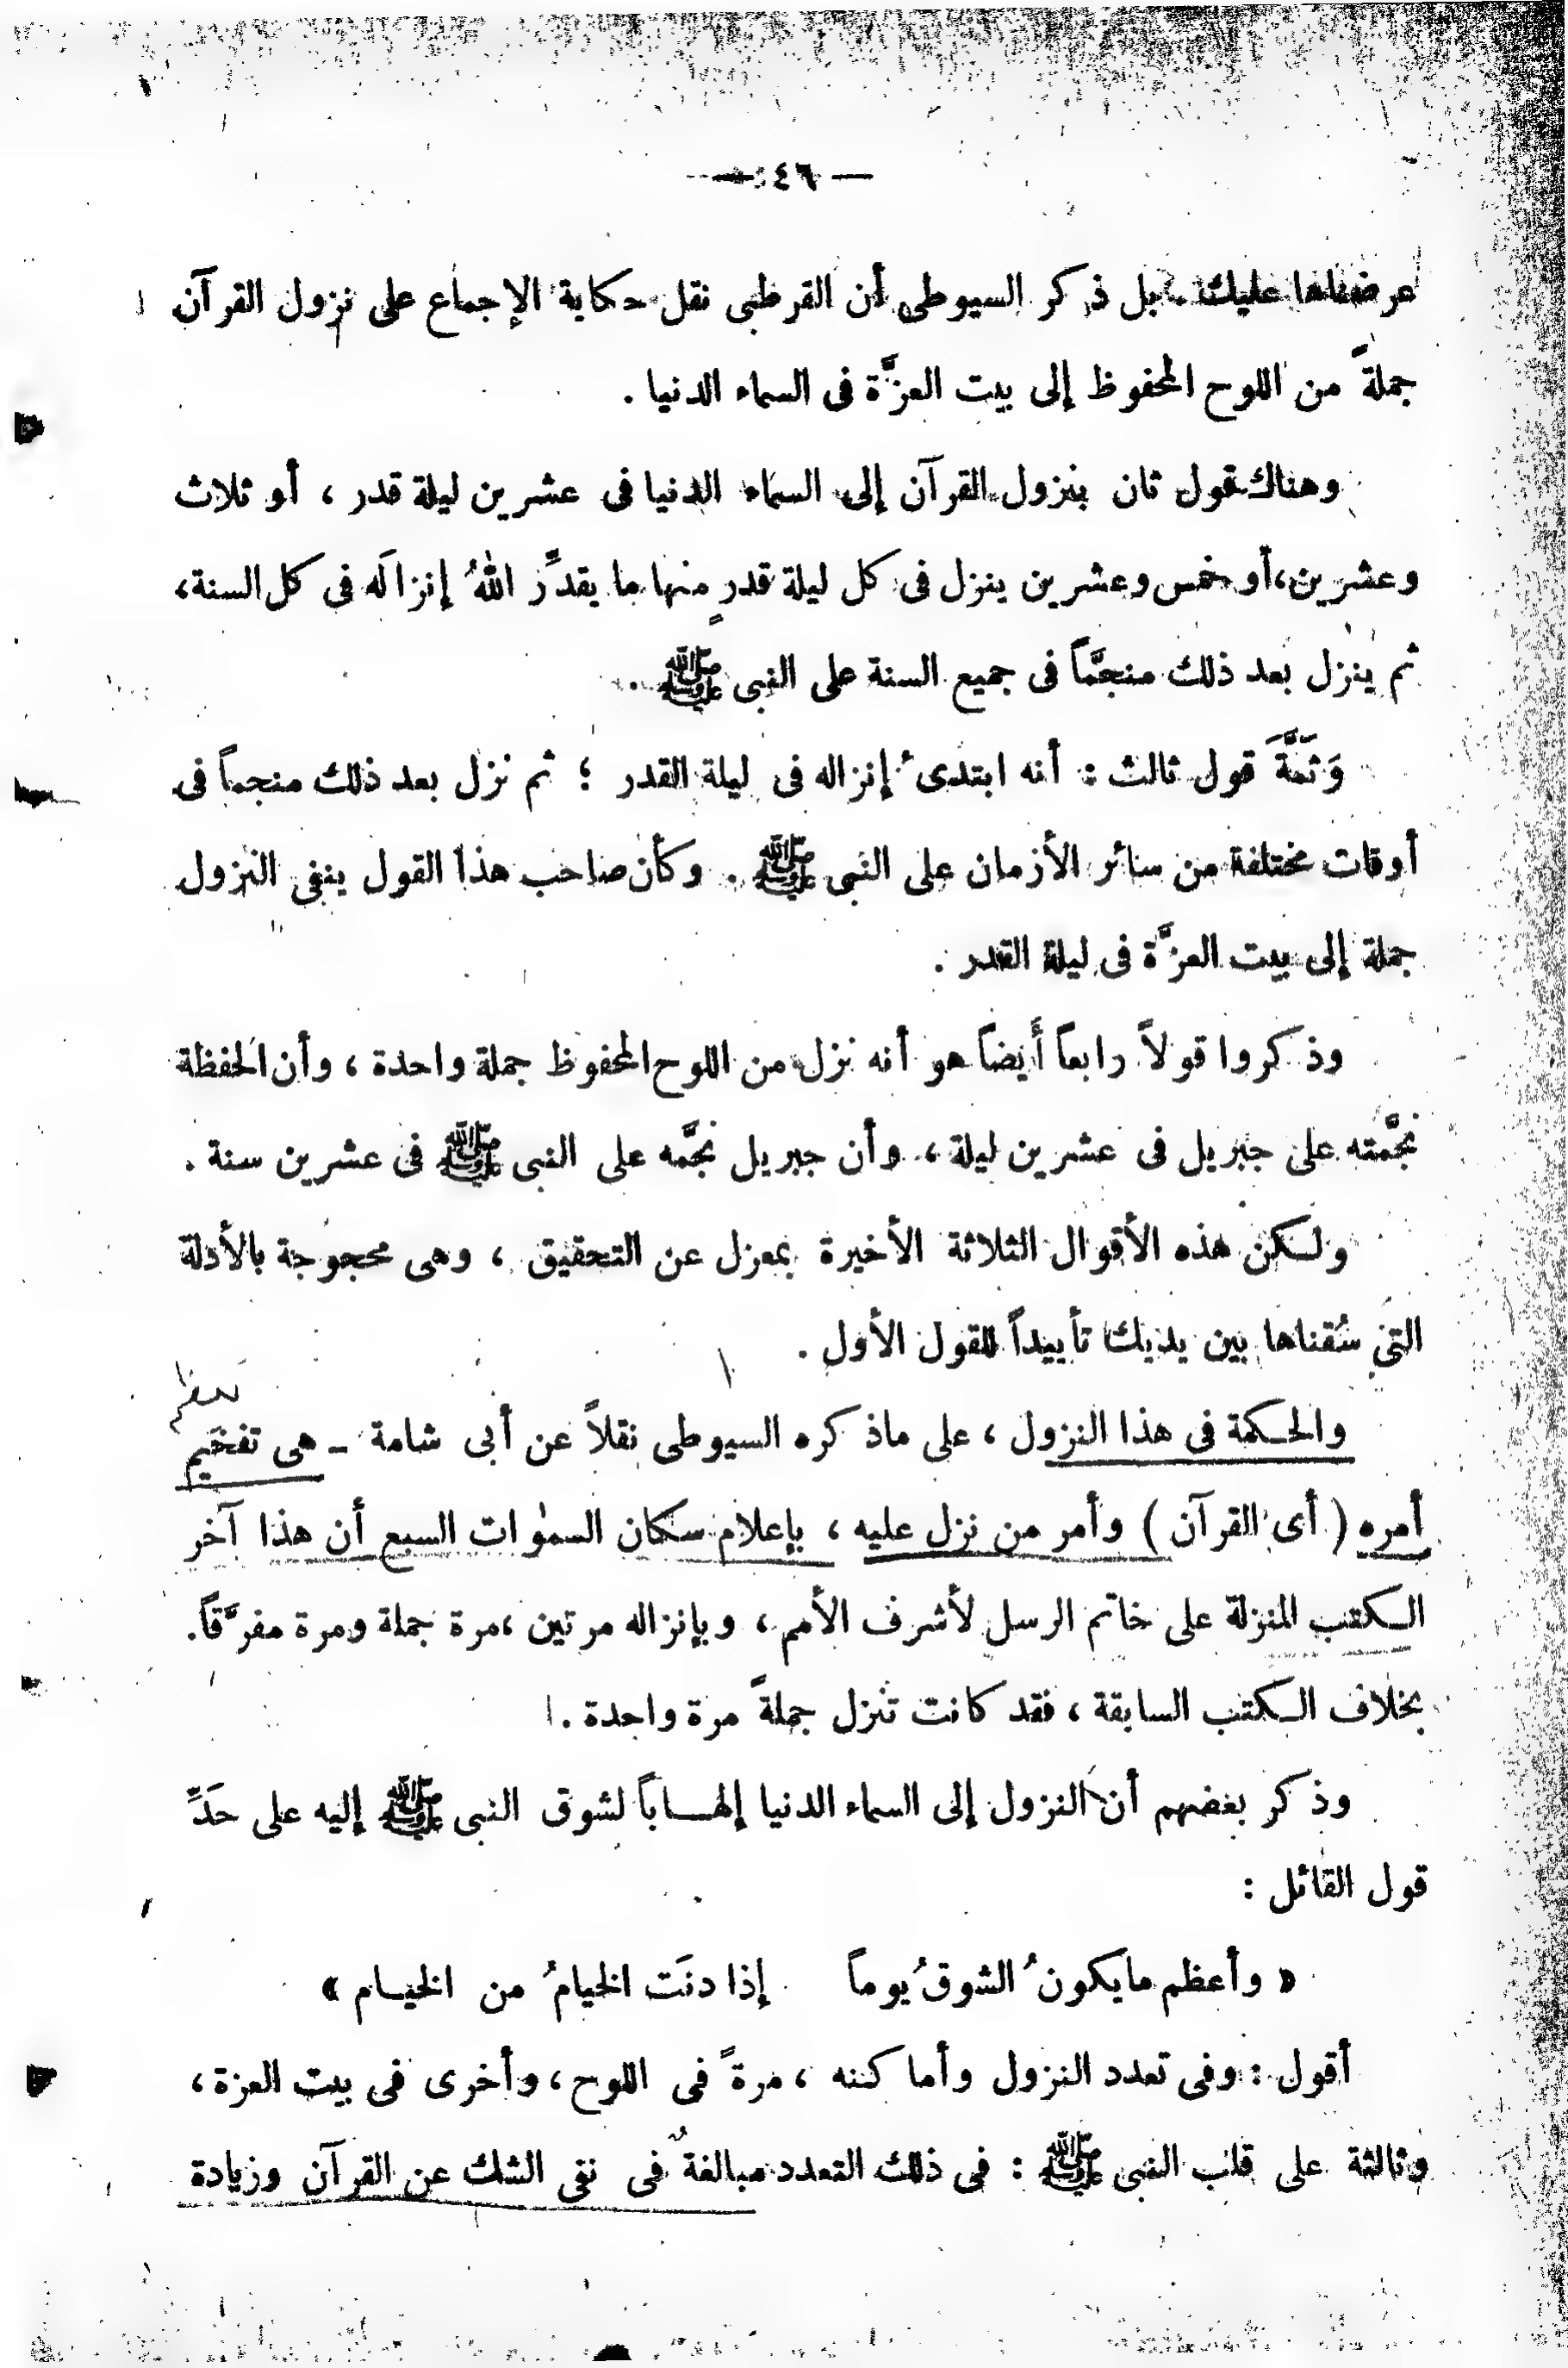 — ٤٦ —
عرضناها عليك . بل ذكر السيوطى أن القرطبى نقل حكاية الإجماع على نزول القرآن
جملةً من اللوح المحفوظ إلى بيت العزَّة فى السماء الدنيا .
وهناك قول ثان بنزول القرآن إلى السماء الدنيا فى عشرين ليلة قدر ، أو ثلاث
وعشرين، أو خمس وعشرين ينزل فى كل ليلة قدرٍ منها ما يقدِّر اللهُ إنزالَه فى كل السنة،
ثم ينزل بعد ذلك منجَّماً فى جميع السنة على النبى ﷺ .
وَثَمَّةَ قول ثالث : أنه ابتدىءُ إنزاله فى ليلة القدر ؛ ثم نزل بعد ذلك منجماً فى
أوقات مختلفة من سائر الأزمان على النبى ﷺ . وكأن صاحب هذا القول ينفى النزول
جملة إلى بيت العزَّة فى ليلة القدر .
وذكروا قولاً رابعاً أيضاً هو أنه نزل من اللوح المحفوظ جملة واحدة ، وأن الحفظة
نجَّمته على جبريل فى عشرين ليلة ، وأن جبريل نجَّمه على النبى ﷺ فى عشرين سنة .
ولكن هذه الأقوال الثلاثة الأخيرة بمعزل عن التحقيق ، وهى محجوجة بالأدلة
التى سُقناها بين يديك تأييداً للقول الأول .
والحكمة فى هذا النزول ، على ماذكره السيوطى نقلاً عن أبى شامة ــ هى تفخيم
أمره ( أى القرآن ) وأمر من نزل عليه ، بإعلام سكان السموات السبع أن هذا آخر
الكتب المنزلة على خاتم الرسل لأشرف الأمم ، وبإنزاله مرتين ، مرة جملة ومرة مفرَّقاً.
بخلاف الكتب السابقة ، فقد كانت تنزل جملةً مرة واحدة .
وذكر بعضهم أن النزول إلى السماء الدنيا إلهــاباً لشوق النبى ﷺ إليه على حَدِّ
قول القائل :
« وأعظم مايكونُ الشوقُ يوماً إذا دنَت الخيامُ من الخيــام »
أقول : وفى تعدد النزول وأماكنه ، مرةً فى اللوح ، وأخرى فى بيت العزة ،
وثالثة على قلب النبى ﷺ : فى ذلك التعدد مبالغةٌ فى نفى الشك عن القرآن وزيادة